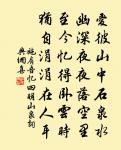 爱彼山中石泉水
幽深夜夜落空里
至今忆得卧云时
犹自涓涓在人耳
施肩吾忆四明山泉词
典网集